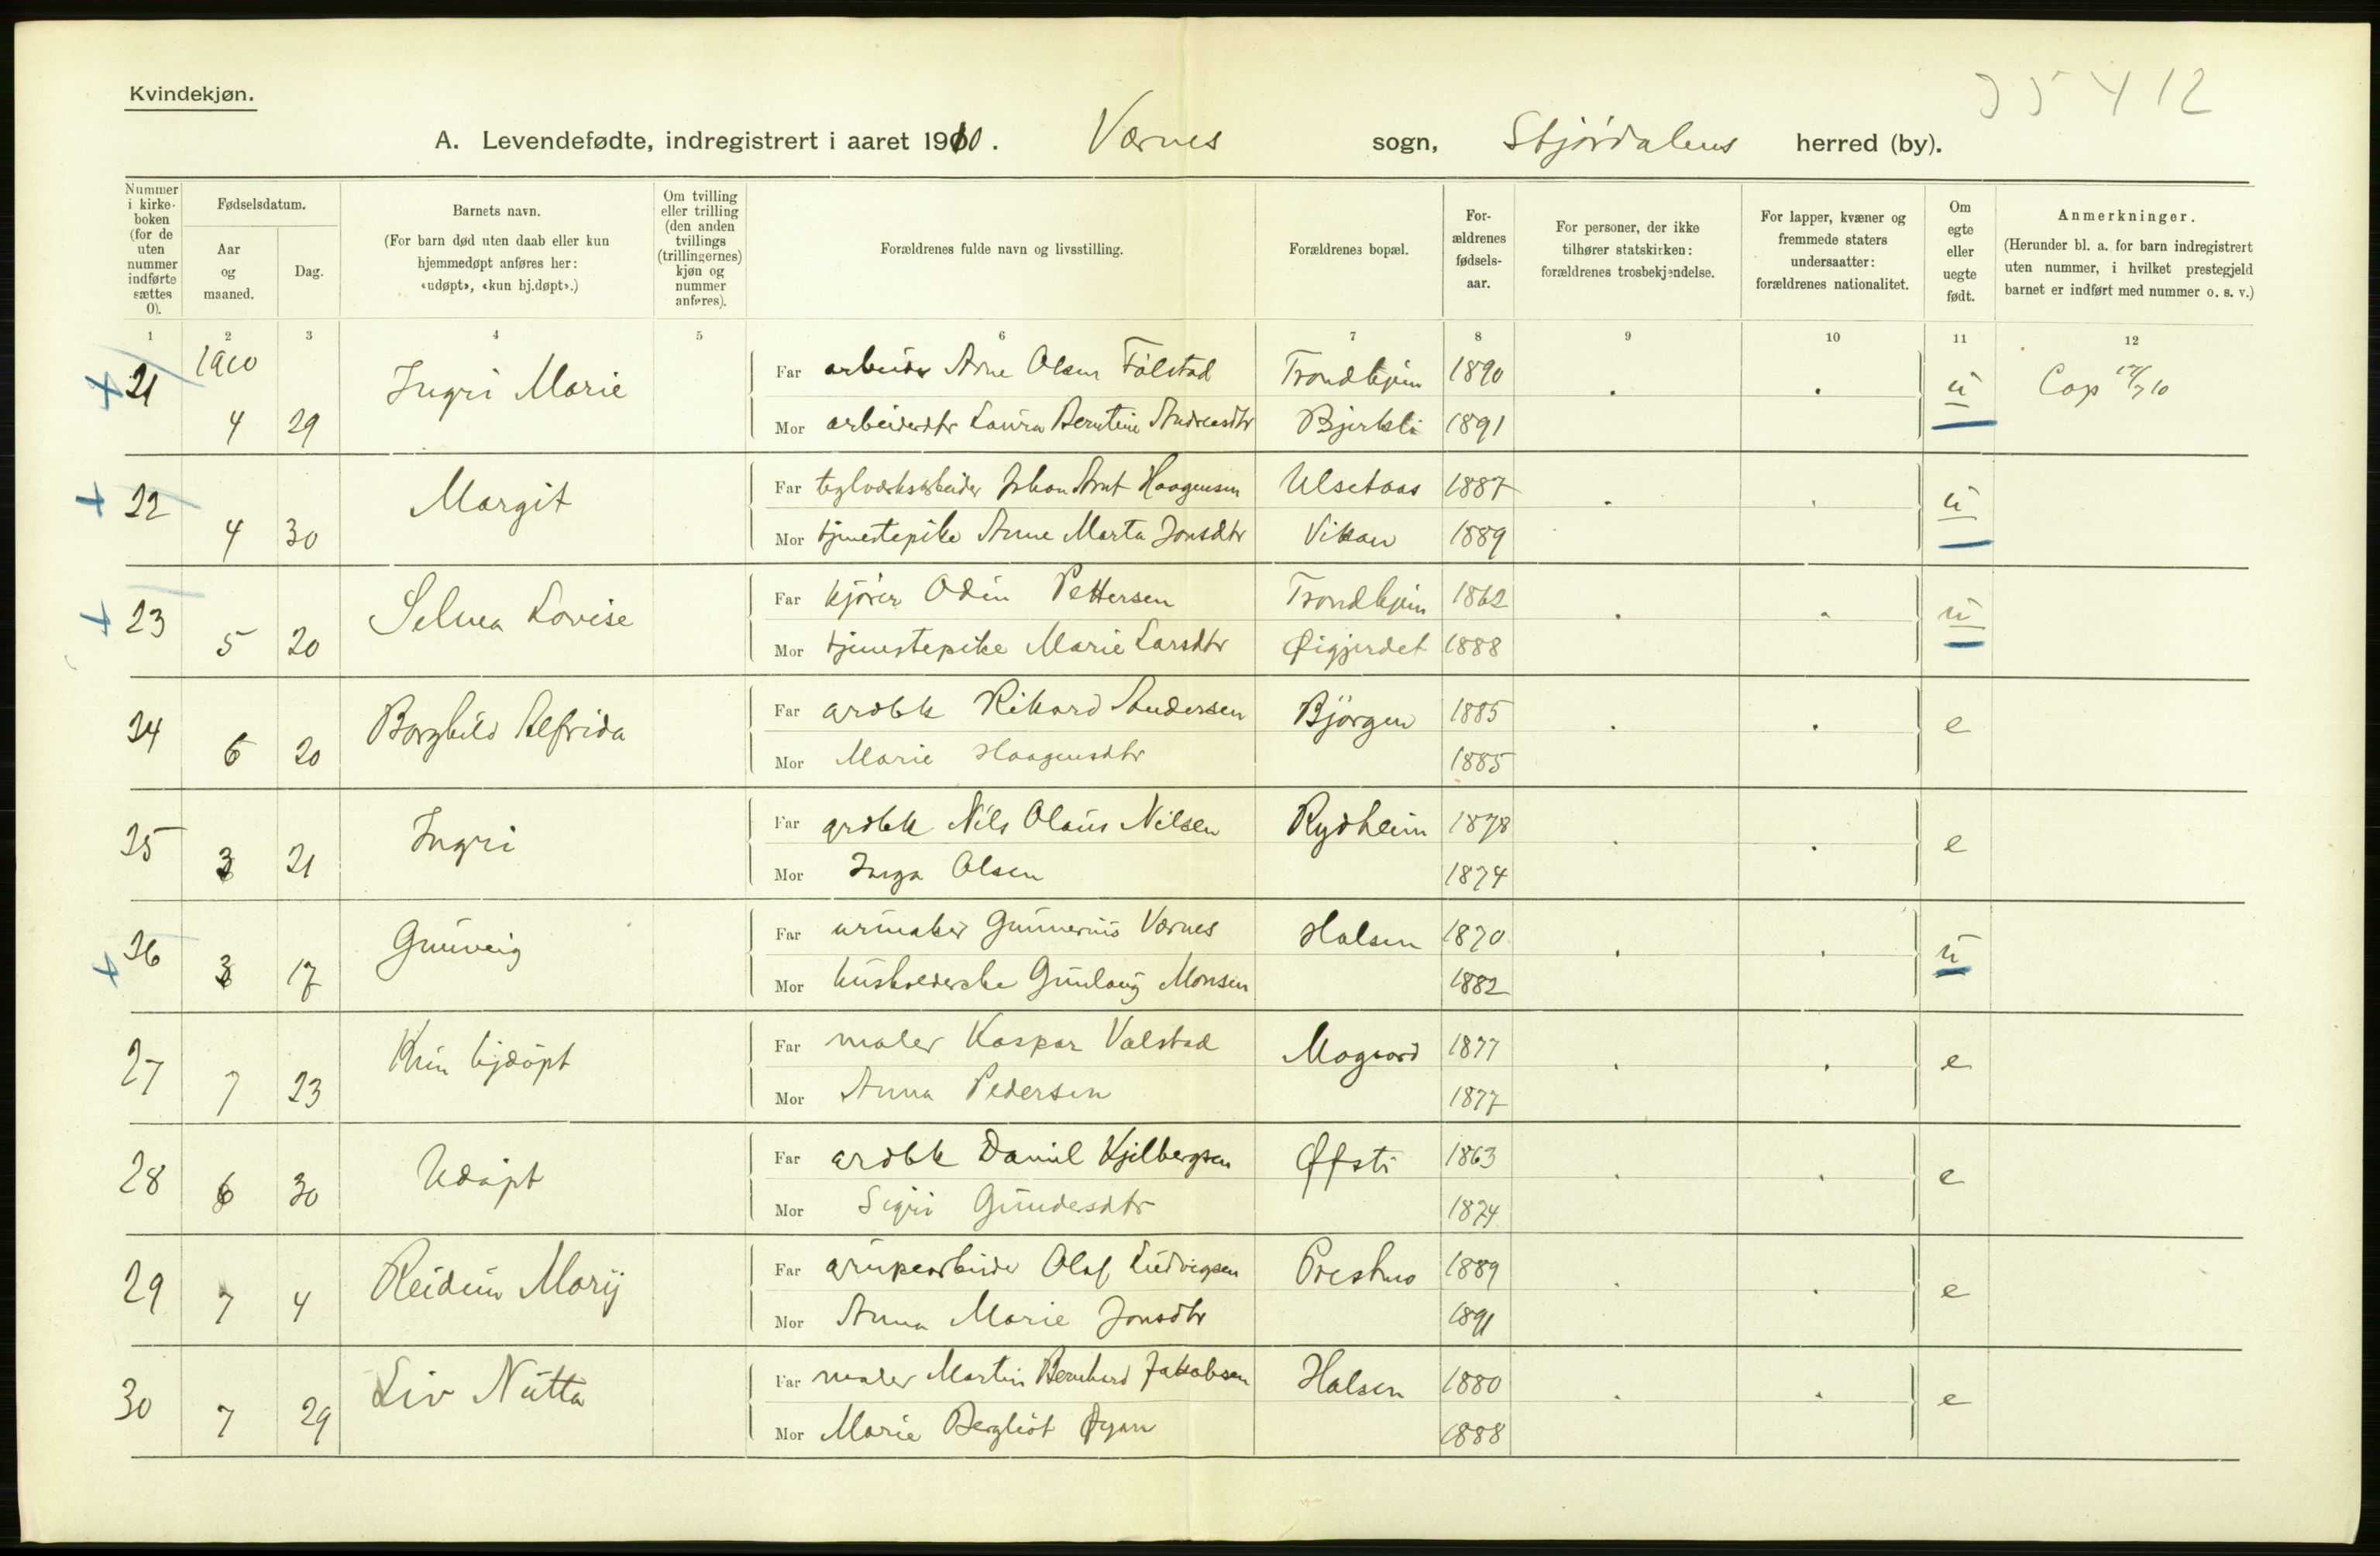 Kvindekjøn.
35412
A. Levendefødte, indregistrert i aaret 1910. Værnes sogn, Stjørdalens herred (by).
Nummer i kirkeboken (for de uten nummer indførte sættes 0).
Fødselsdatum.
Aar og maaned.
Dag.
Barnets navn.
(For barn død uten daab eller kun hjemmedøpt anføres her: «udøpt», «kun hj.døpt».)
Om tvilling eller trilling (den anden tvillings (trillingernes) kjøn og nummer anføres).
Forældrenes fulde navn og livsstilling.
Forældrenes bopæl.
Forældrenes fødselsaar.
For personer, der ikke tilhører statskirken: forældrenes trosbekjendelse.
For lapper, kvæner og fremmede staters undersaatter: forældrenes nationalitet.
Om egte eller uegte født.
Anmerkninger.
(Herunder bl. a. for barn indregistrert uten nummer, i hvilket prestegjeld barnet er indført med nummer o. s. v.)
1 2 3 4 5 6 7 8 9 10 11 12
1910
21 4 29 Ingri Marie
Far arbeider Arne Olsen Følstad Trondhjem 1890 u Cop
Mor arbeiderdtr Laura Berntine Andreasdtr Bjerkli 1891
22 4 30 Margit
Far teglværksarbeider Johan Arnt Haagensen Ulsetaas 1887 u
Mor tjenestepike Anne Marta Jonsdtr Vikan 1889
23 5 20 Selma Lovise
Far kjører Odin Pettersen Trondhjem 1862 u
Mor tjenestepike Marie Larsdtr Øigjerdet 1888
24 6 20 Borghild Alfrida
Far grdbk Rikard Andersen Bjørgen 1885 e
Mor Marie Haagensdtr 1885
25 3 21 Ingri
Far grdbk Nils Olaus Nilsen Rydheim 1878 e
Mor Inga Olsen 1874
26 3 17 Gunveig
Far urmaker Gunnerius Værnes Halsen 1870 u
Mor husholderske Gunlaug Monsen 1882
27 7 23 Kun hjdøpt
Far maler Kaspar Valstad Mogaard 1877 e
Mor Anna Pedersen 1877
28 6 30 Udøpt
Far grdbk Daniel Kjelbergsen Øfsti 1863 e
Mor Sigri Gundersdtr 1874
29 7 4 Reidun Marij
Far grupearbeider Olaf Ludvigsen Prestmo 1889 e
Mor Anna Marie Jonsdtr 1891
30 7 29 Liv Nutta
Far maler Martin Bernhard Jakobsen Halsen 1880 e
Mor Marie Bergliot Øyan 1888